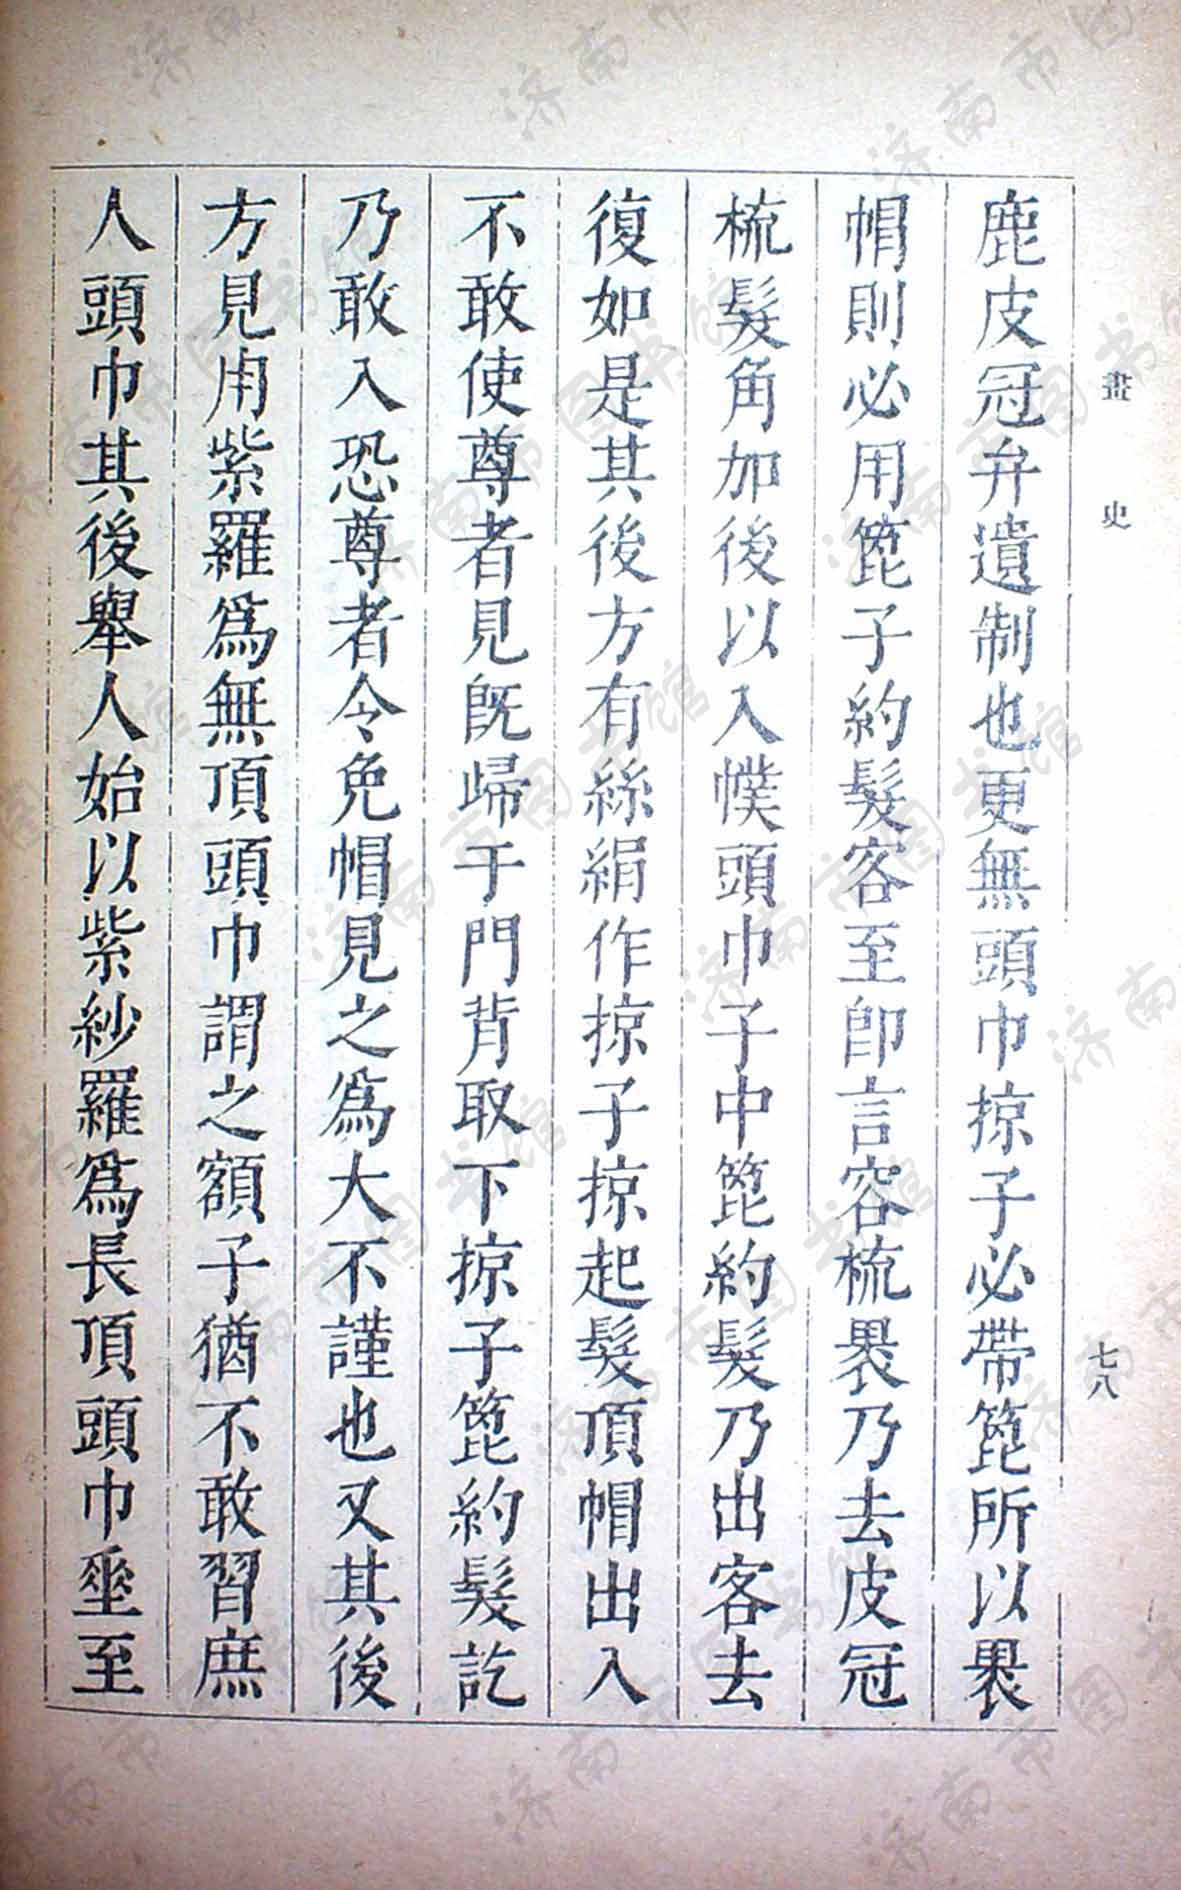 畫史
七八
鹿皮冠弁遺制也更無頭巾掠子必帶篦所以裹
帽則必用篦子約髮客至卽言容梳裹乃去皮冠
梳髮角加後以入幞頭巾子中篦約髮乃出客去
復如是其後方有絲絹作掠子掠起髮頂帽出入
不敢使尊者見旣歸于門背取下掠子篦約髮訖
乃敢入恐尊者令免帽見之爲大不謹也又其後
方見用紫羅爲無頂頭巾謂之額子猶不敢習庶
人頭巾其後舉人始以紫紗羅爲長頂頭巾垂至